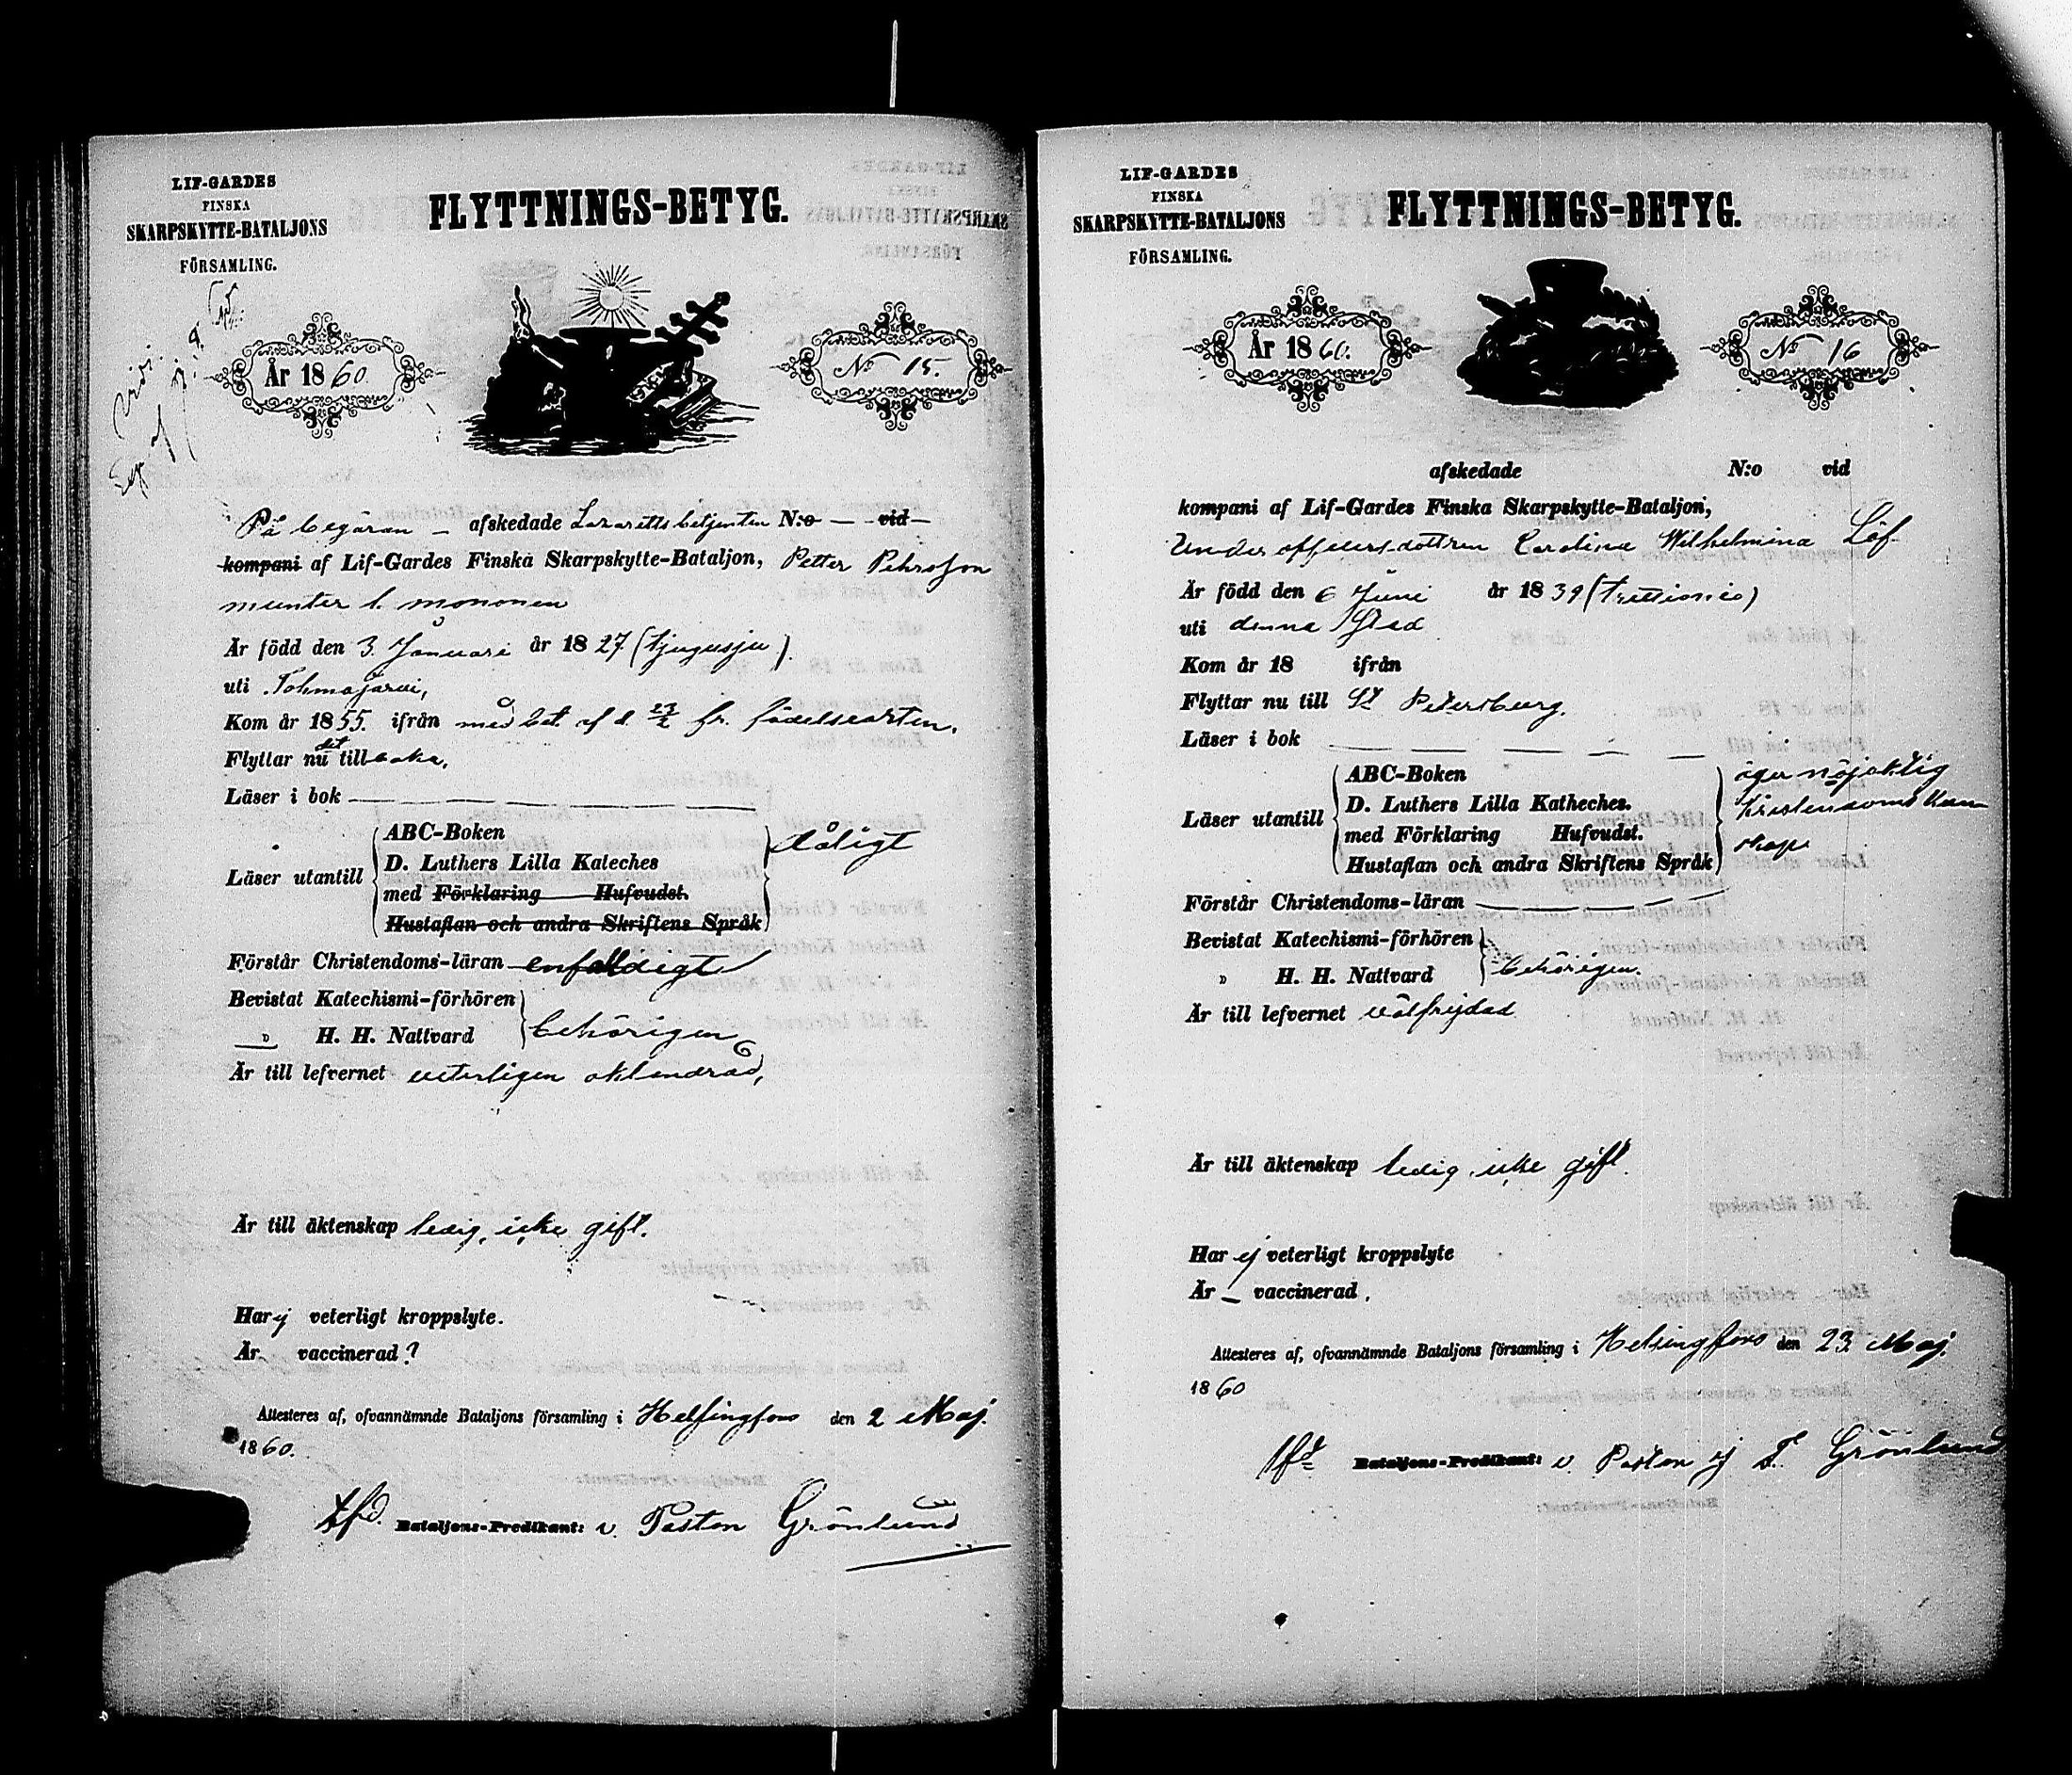 LIF-GARDES
FINSKA
SKARPSKYTTE-BATALJONS
FÖRSAMLING.
FLYTTNINGS-BETYG.
År 1860.
No 15.
På begäran – afskedade Lazarettsbetjenten N:o — vid —
kompani af Lif-Gardes Finska Skarpskytte-Bataljon, Petter Pehrsson
munter l. mononen
Är född den 3. Januari år 1827 (tjugusju).
uti Tohmajärvi,
Kom år 1855. ifrån med bet. af d. 23/2 fr. födelseorten.
Flyttar nu dit tillbaka,
Läser i bok — — — — — —
Läser utantill
ABC-Boken
D. Luthers Lilla Kateches
med Förklaring Hufvudst.
Hustaflan och andra Skriftens Språk
dåligt
Förstår Christendoms-läran enfaldigt
Bevistat Katechismi-förhören
" H. H. Nattvard
behörigen
Är till lefvernet veterligen oklandrad,
Är till äktenskap ledig, icke gift.
Har ej veterligt kroppslyte.
Är vaccinerad?
Attesteres af, ofvannämnde Bataljons församling i Helsingfors den 2 Maj.
1860.
tfd. Bataljons-Predikant: v. Pastor Grönlund
LIF-GARDES
FINSKA
SKARPSKYTTE-BATALJONS
FÖRSAMLING.
FLYTTNINGS-BETYG.
År 1860.
No 16
afskedade N:o vid
kompani af Lif-Gardes Finska Skarpskytte-Bataljon,
Underofficersdottren Carolina Wilhelmina Löf
Är född den 6 Juni år 1839 (trettionio)
uti denna Stad
Kom år 18 ifrån
Flyttar nu till St Petersburg.
Läser i bok — — — — —
Läser utantill
ABC-Boken
D. Luthers Lilla Katheches.
med Förklaring Hufvudst.
Hustaflan och andra Skriftens Språk
äger nöjaktig
kristendoms kun
skap
Förstår Christendoms-läran — — — —
Bevistat Katechismi-förhören
" H. H. Nattvard
behörigen.
Är till lefvernet välfrejdad
Är till äktenskap ledig, icke gift.
Har ej veterligt kroppslyte
Är – vaccinerad.
Attesteres af, ofvannämnde Bataljons församling i Helsingfors den 23 Maj.
1860
tfd Bataljons-Predikant: v. Pastor Grönlund